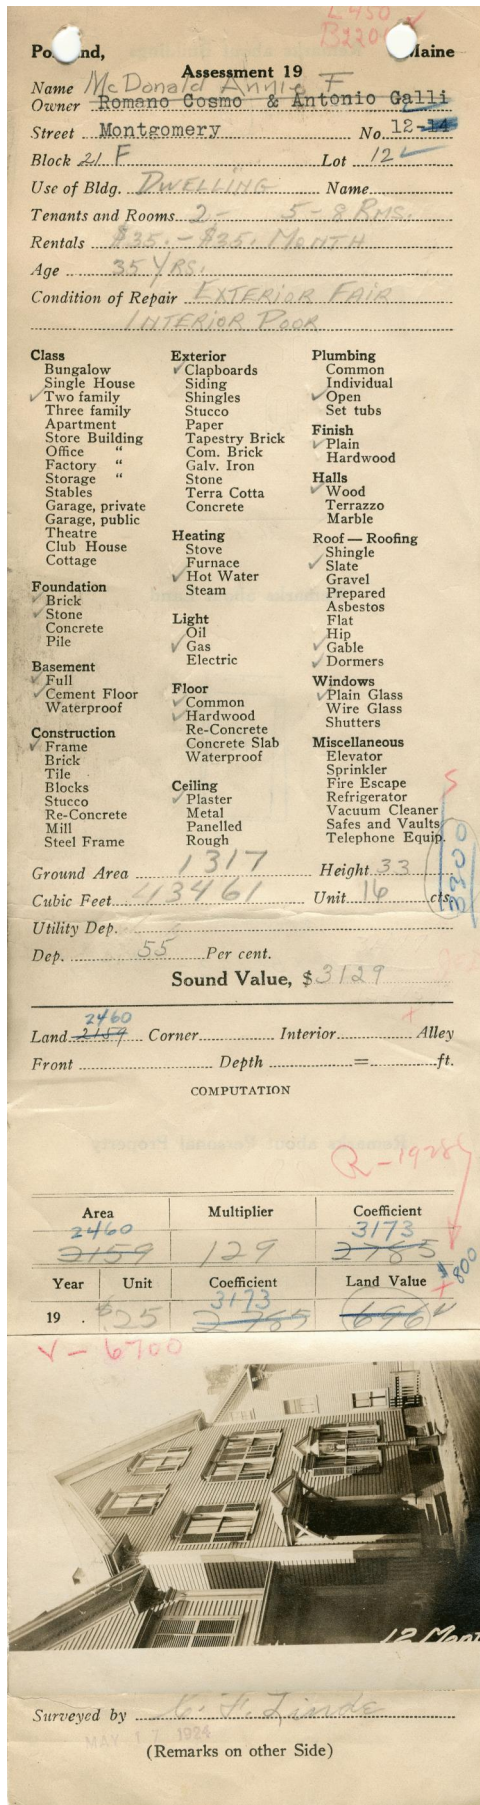 L 450
B2200
Portland, Maine
Assessment 19
Name McDonald Annie F
Owner Romano Cosmo & Antonio Galli
Street Montgomery No. 12-14
Block 21 F Lot 12
Use of Bldg. DWELLING Name
Tenants and Rooms 2- 5-8 RMS.
Rentals $35.-$35. MONTH
Age 35 YRS.
Condition of Repair EXTERIOR FAIR
INTERIOR POOR
Class
Bungalow
Single House
✓ Two family
Three family
Apartment
Store Building
Office "
Factory "
Storage "
Stables
Garage, private
Garage, public
Theatre
Club House
Cottage
Foundation
✓ Brick
✓ Stone
Concrete
Pile
Basement
✓ Full
✓ Cement Floor
Waterproof
Construction
✓ Frame
Brick
Tile
Blocks
Stucco
Re-Concrete
Mill
Steel Frame
Exterior
✓ Clapboards
Siding
Shingles
Stucco
Paper
Tapestry Brick
Com. Brick
Galv. Iron
Stone
Terra Cotta
Concrete
Heating
Stove
Furnace
✓ Hot Water
Steam
Light
Oil
✓ Gas
Electric
Floor
✓ Common
✓ Hardwood
Re-Concrete
Concrete Slab
Waterproof
Ceiling
✓ Plaster
Metal
Panelled
Rough
Plumbing
Common
Individual
✓ Open
Set tubs
Finish
✓ Plain
Hardwood
Halls
✓ Wood
Terrazzo
Marble
Roof — Roofing
Shingle
✓ Slate
Gravel
Prepared
Asbestos
Flat
Hip
✓ Gable
✓ Dormers
Windows
✓ Plain Glass
Wire Glass
Shutters
Miscellaneous
Elevator
Sprinkler
Fire Escape
Refrigerator
Vacuum Cleaner
Safes and Vaults
Telephone Equip.
3300
Ground Area 1317 Height 33
Cubic Feet 43461 Unit 16 cts.
Utility Dep.
Dep. 55 Per cent.
Sound Value, $3129
2460
Land 2159 Corner Interior Alley
Front Depth = ft.
COMPUTATION
R-1928
Area Multiplier Coefficient
2460 3173
2159 129 2785
Year Unit Coefficient Land Value
$800
3173
19 . $25 2785 696
V-6700
12 Mont
Surveyed by C. F. Linde
MAY 17 1924
(Remarks on other Side)